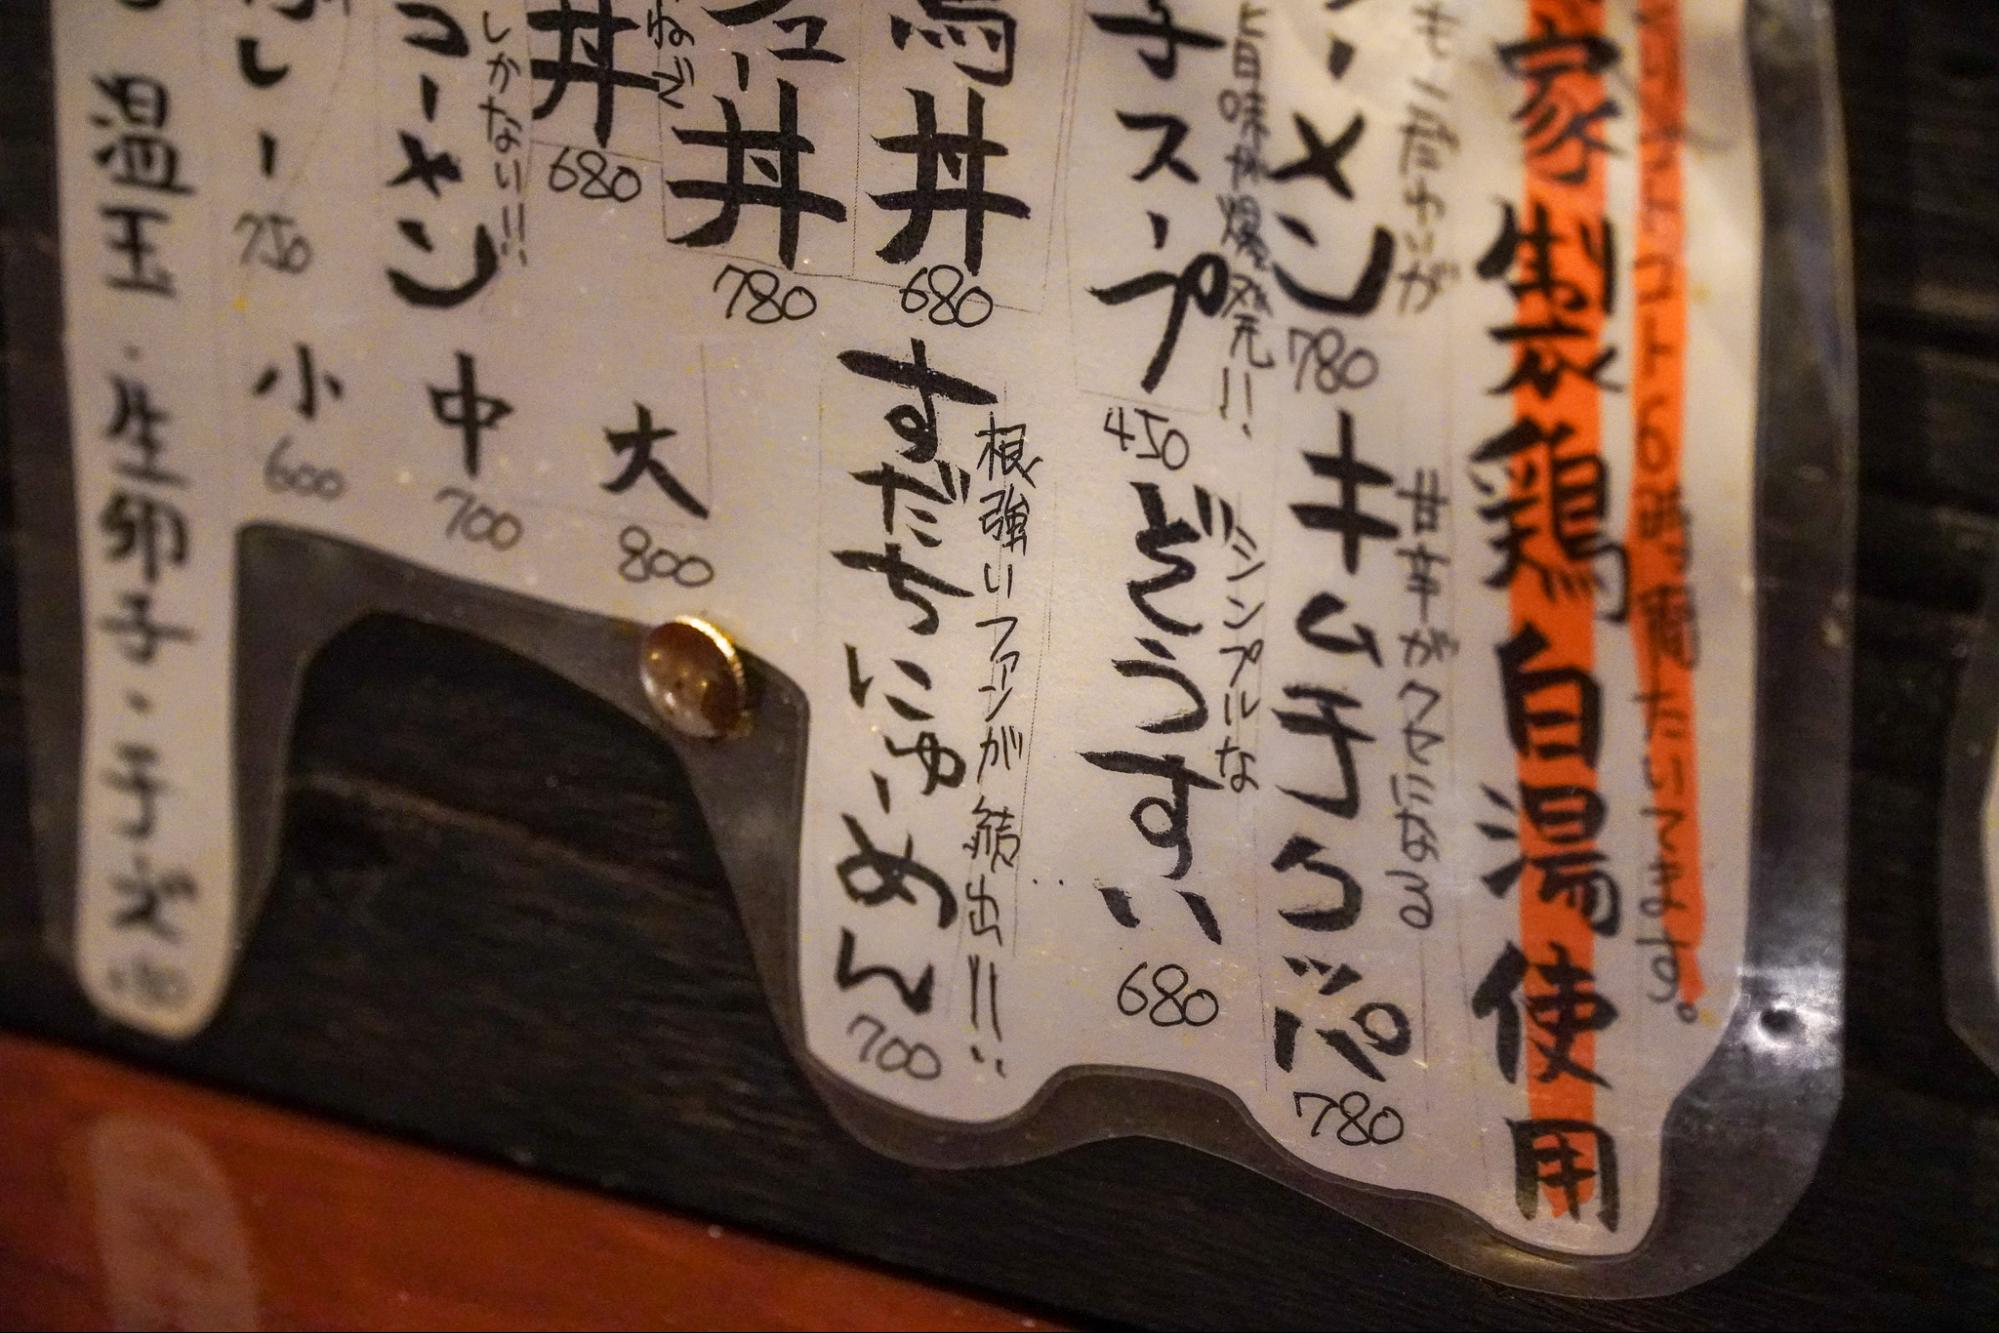 コトコト6時間
たいてます。
家製鶏白湯使用
ーメン 780
甘辛がクセになる
キムチクッパ 780
旨味が爆発!!
子スープ 450
シンプルな
ぞうすい 680
丼 680
根強いファンが続出!!
すだちにゅーめん 700
ュー丼 780
ねぎ
丼 680
しかない!!
コーメン
大 800
中 700
小 600
レー 750
温玉・生卵